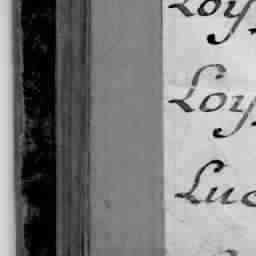 Loy
Loy
Luc